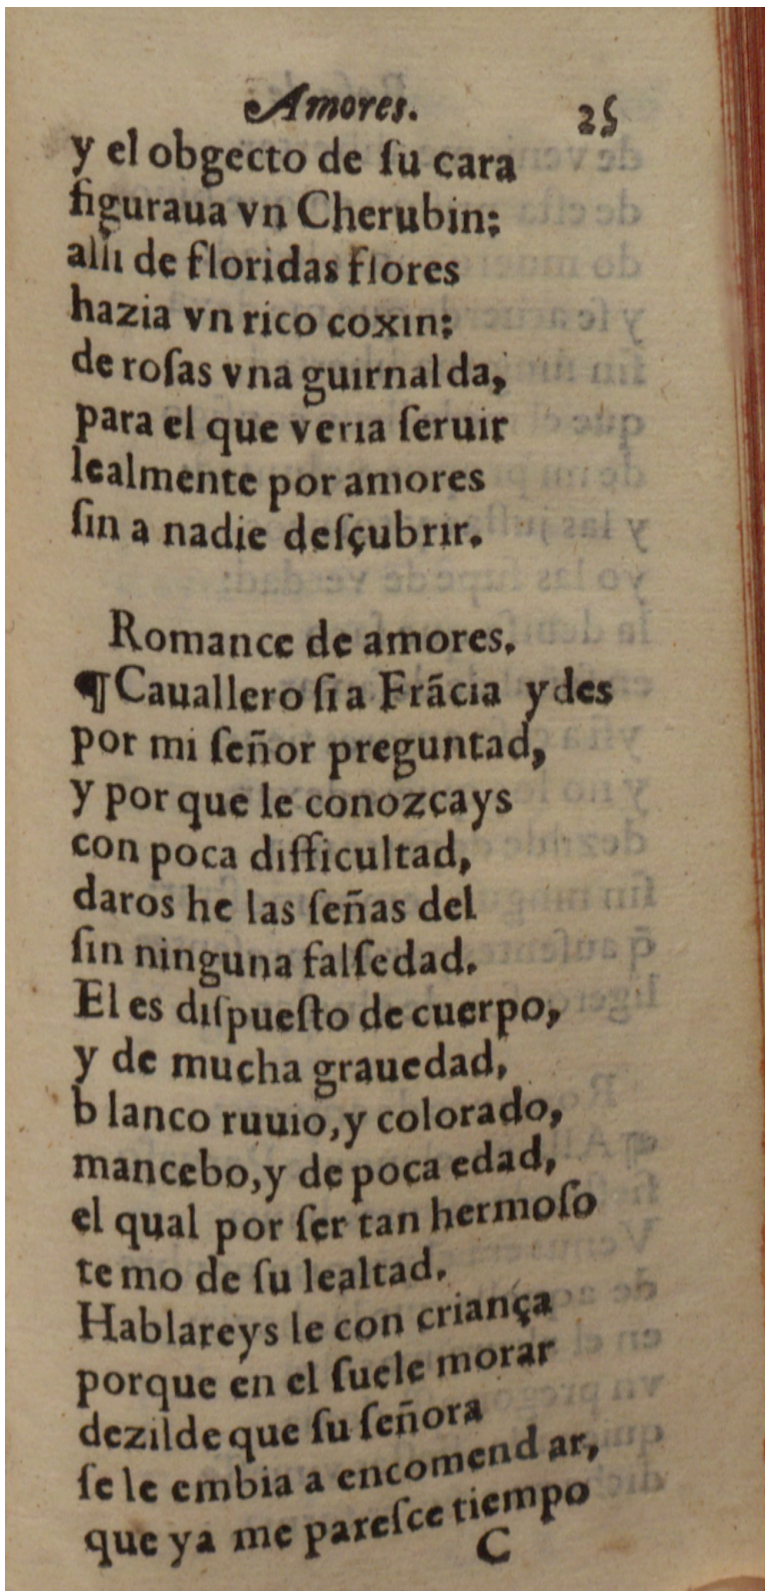 Amores. 25
y el obgecto de ſu cara
figuraua vn Cherubin;
alli de floridas flores
hazia vn rico coxin;
de roſas vna guirnalda,
para el que veria ſeruir
lealmente por amores
ſin a nadie deſçubrir.
Romance de amores.
¶Cauallero ſi a Frãcia ydes
por mi ſeñor preguntad,
y por que le conozcays
con poca difficultad,
daros he las ſeñas del
ſin ninguna falſedad.
El es diſpueſto de cuerpo,
y de mucha grauedad,
b lanco ruuio, y colorado,
mancebo, y de poca edad,
el qual por ſer tan hermoſo
te mo de ſu lealtad.
Hablareys le con criança
porque en el ſuele morar
dezilde que ſu ſeñora
ſe le embia a encomend ar,
que ya me pareſce tiempo
C